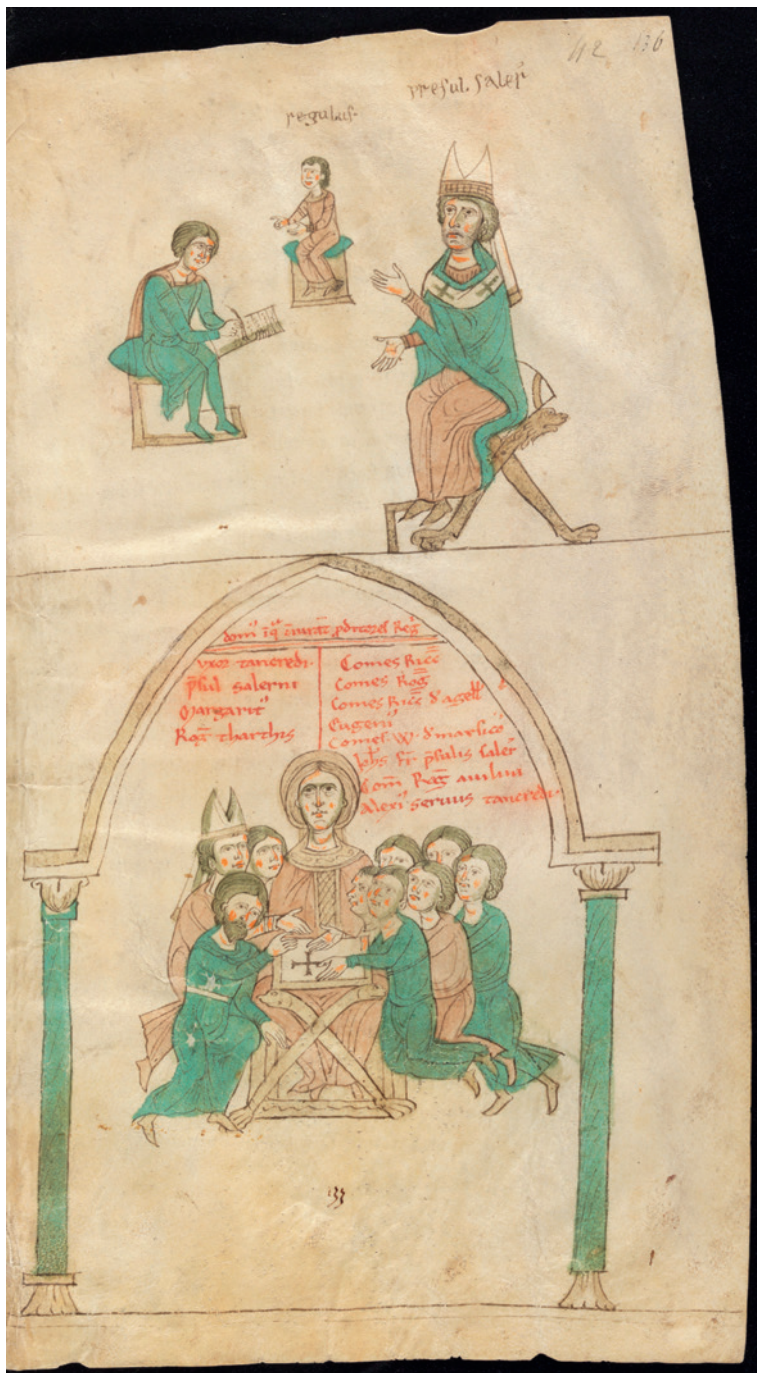 42 136
presul. saler̃
regulus.
dom᷒ ĩ q̃ iurãt ꝓditores Reg̃
uxor tancredi.
p̃sul salerni
Margarit᷒
Rog̃ tharthis
Comes Ricc̃
Comes Rog̃
Comes Ricc̃ d'agell̃
Eugeni᷒
Comes. W. d'marsico
Joh̃s fr̃ p̃sulis saler̃
Com̃ Rog̃ auilini
Alexi᷒ seruus tancredi.